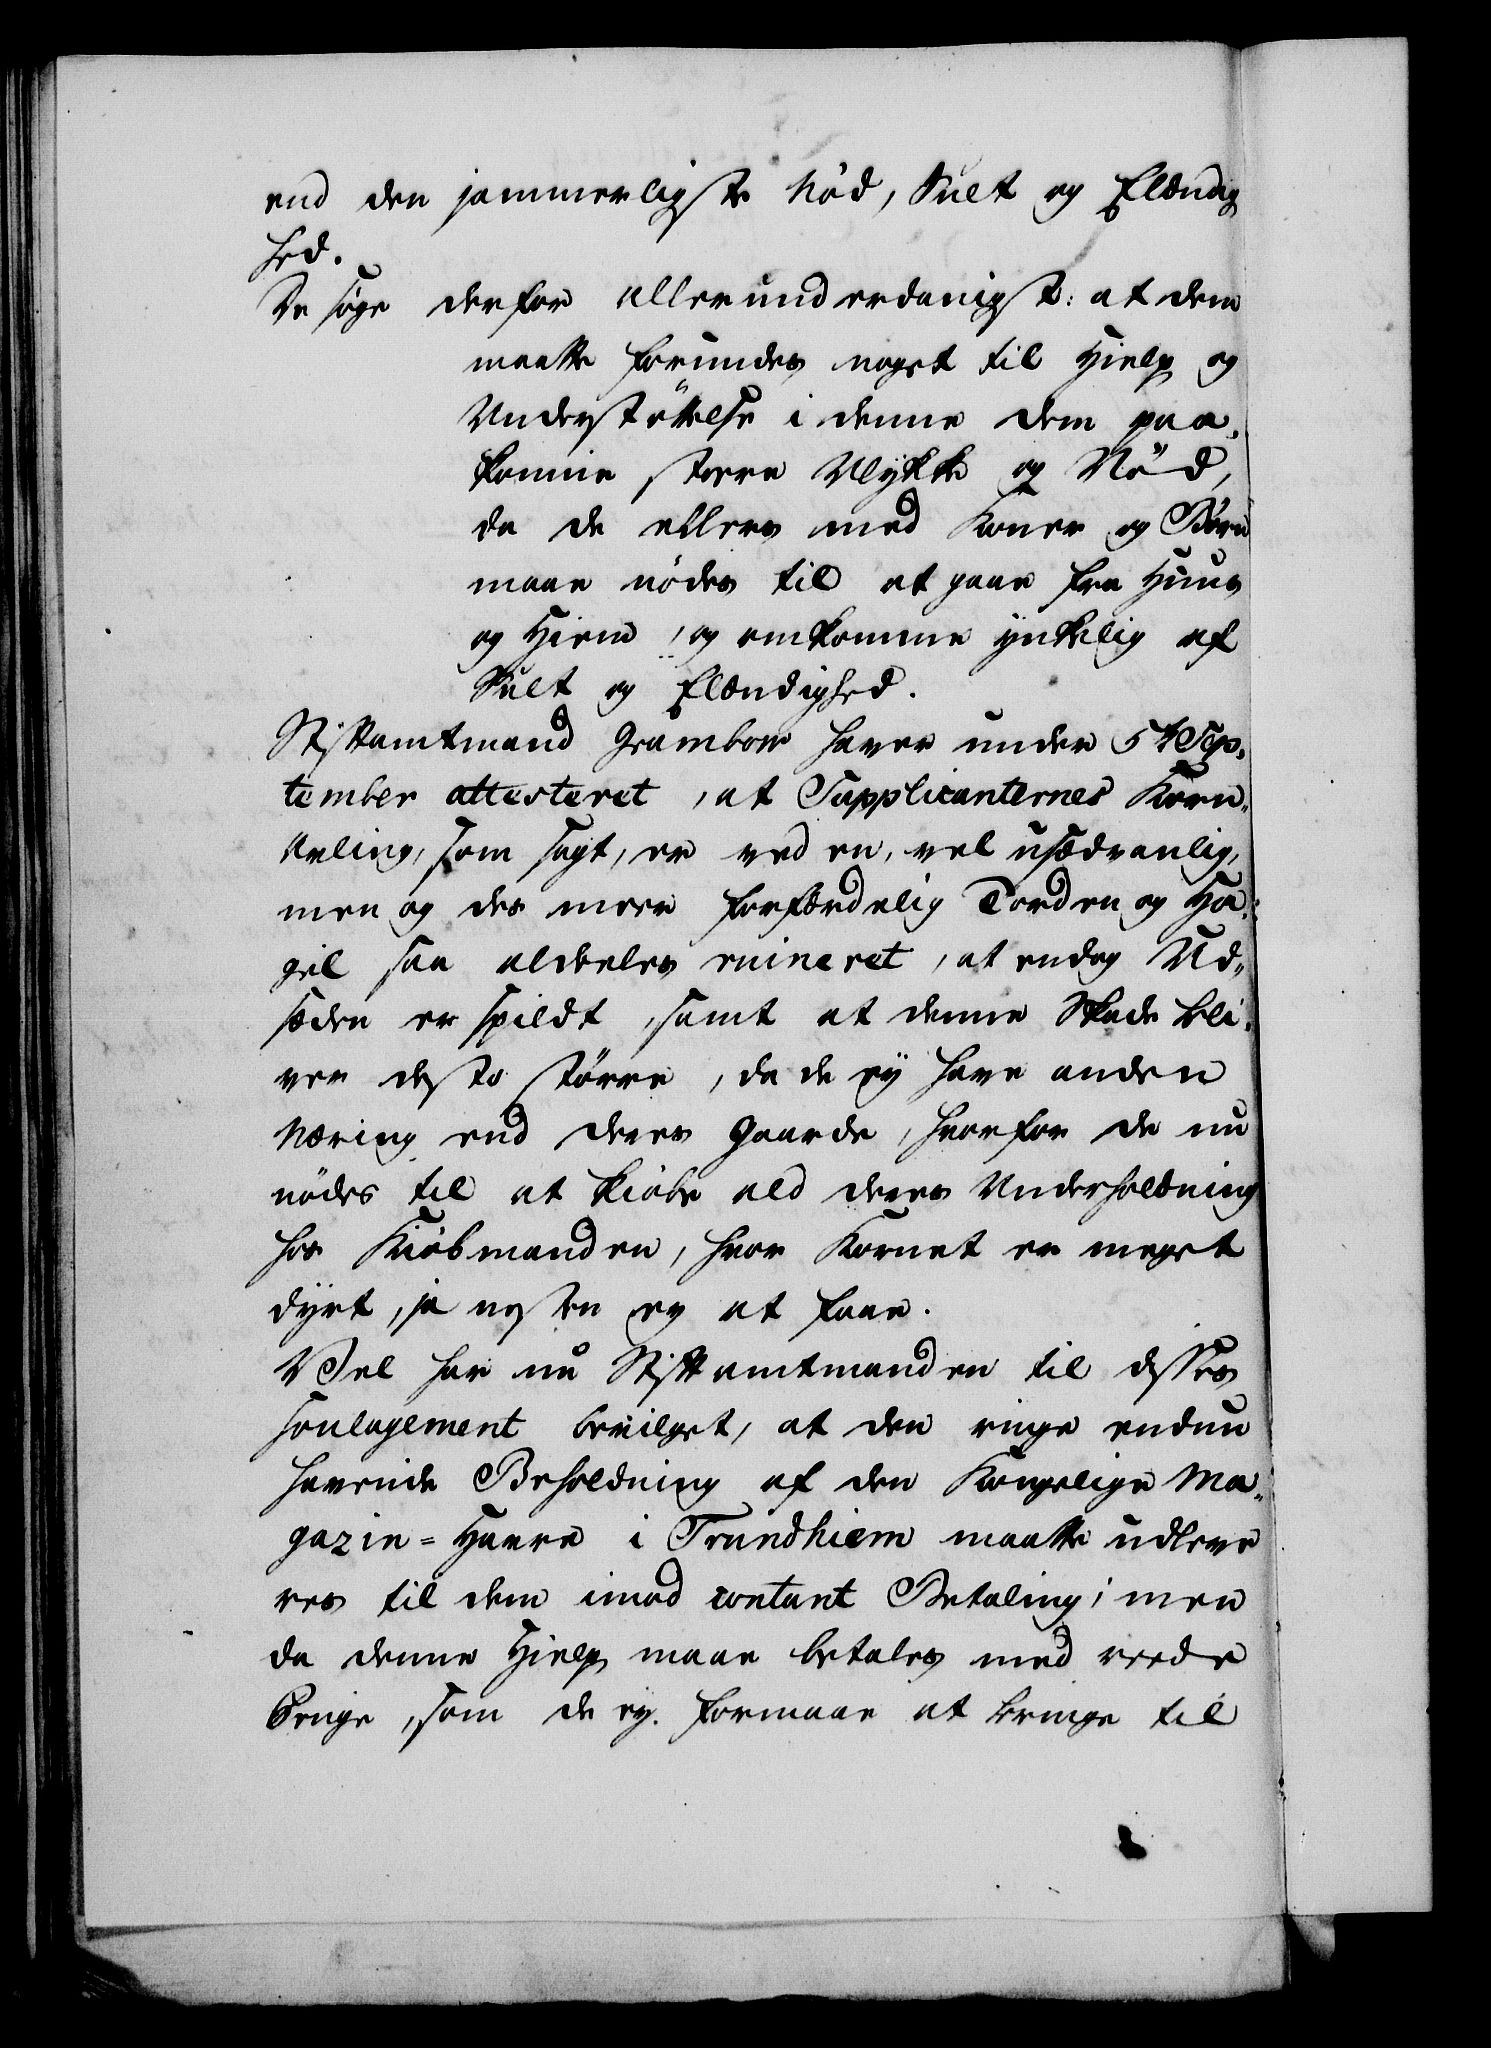 end den jammerligste Nöd, Sult og Elændig
hed.
De söge derfor allerunderdanigst: at dem
maatte forundes noget til Hielp og
Understöttelse i denne dem paa,
komne store Ulykke og Nöd,
da de ellers med Koner og Börn
maae nödes til at gaae fra Huus
og Hiem, og omkomme ynkelig af
Sult og Elændighed.
Stiftamtmand Grambow haver under 5te Sep,
tember attesteret, at Supplicanternes Korn„
Avling, som sagt, er ved en, vel usædvanlig,
men og des meere forfærdelig Torden og Ha„
gel saa aldeeles ruineret, at endog Ud„
sæden er spildt, samt at denne Skade bli„
ver desto större, da de ey have anden
Næring end deres Gaarde, hvorfor de nu
nödes til at kiöbe ald deres Underholdning
hos Kiöbmanden, hvor Kornet er meget
dyrt, ja nesten ey at faae.
Vel har nu Stiftamtmanden til disses
Soulagement bevilget, at den ringe endnu
havende Beholdning af den Kongelige Ma„
gazin=Havre i Trundhiem maatte udleve
res til dem imod contant Betaling; men
da denne Hielp maae betales med reede
Penge, som de ey formaae at bringe til